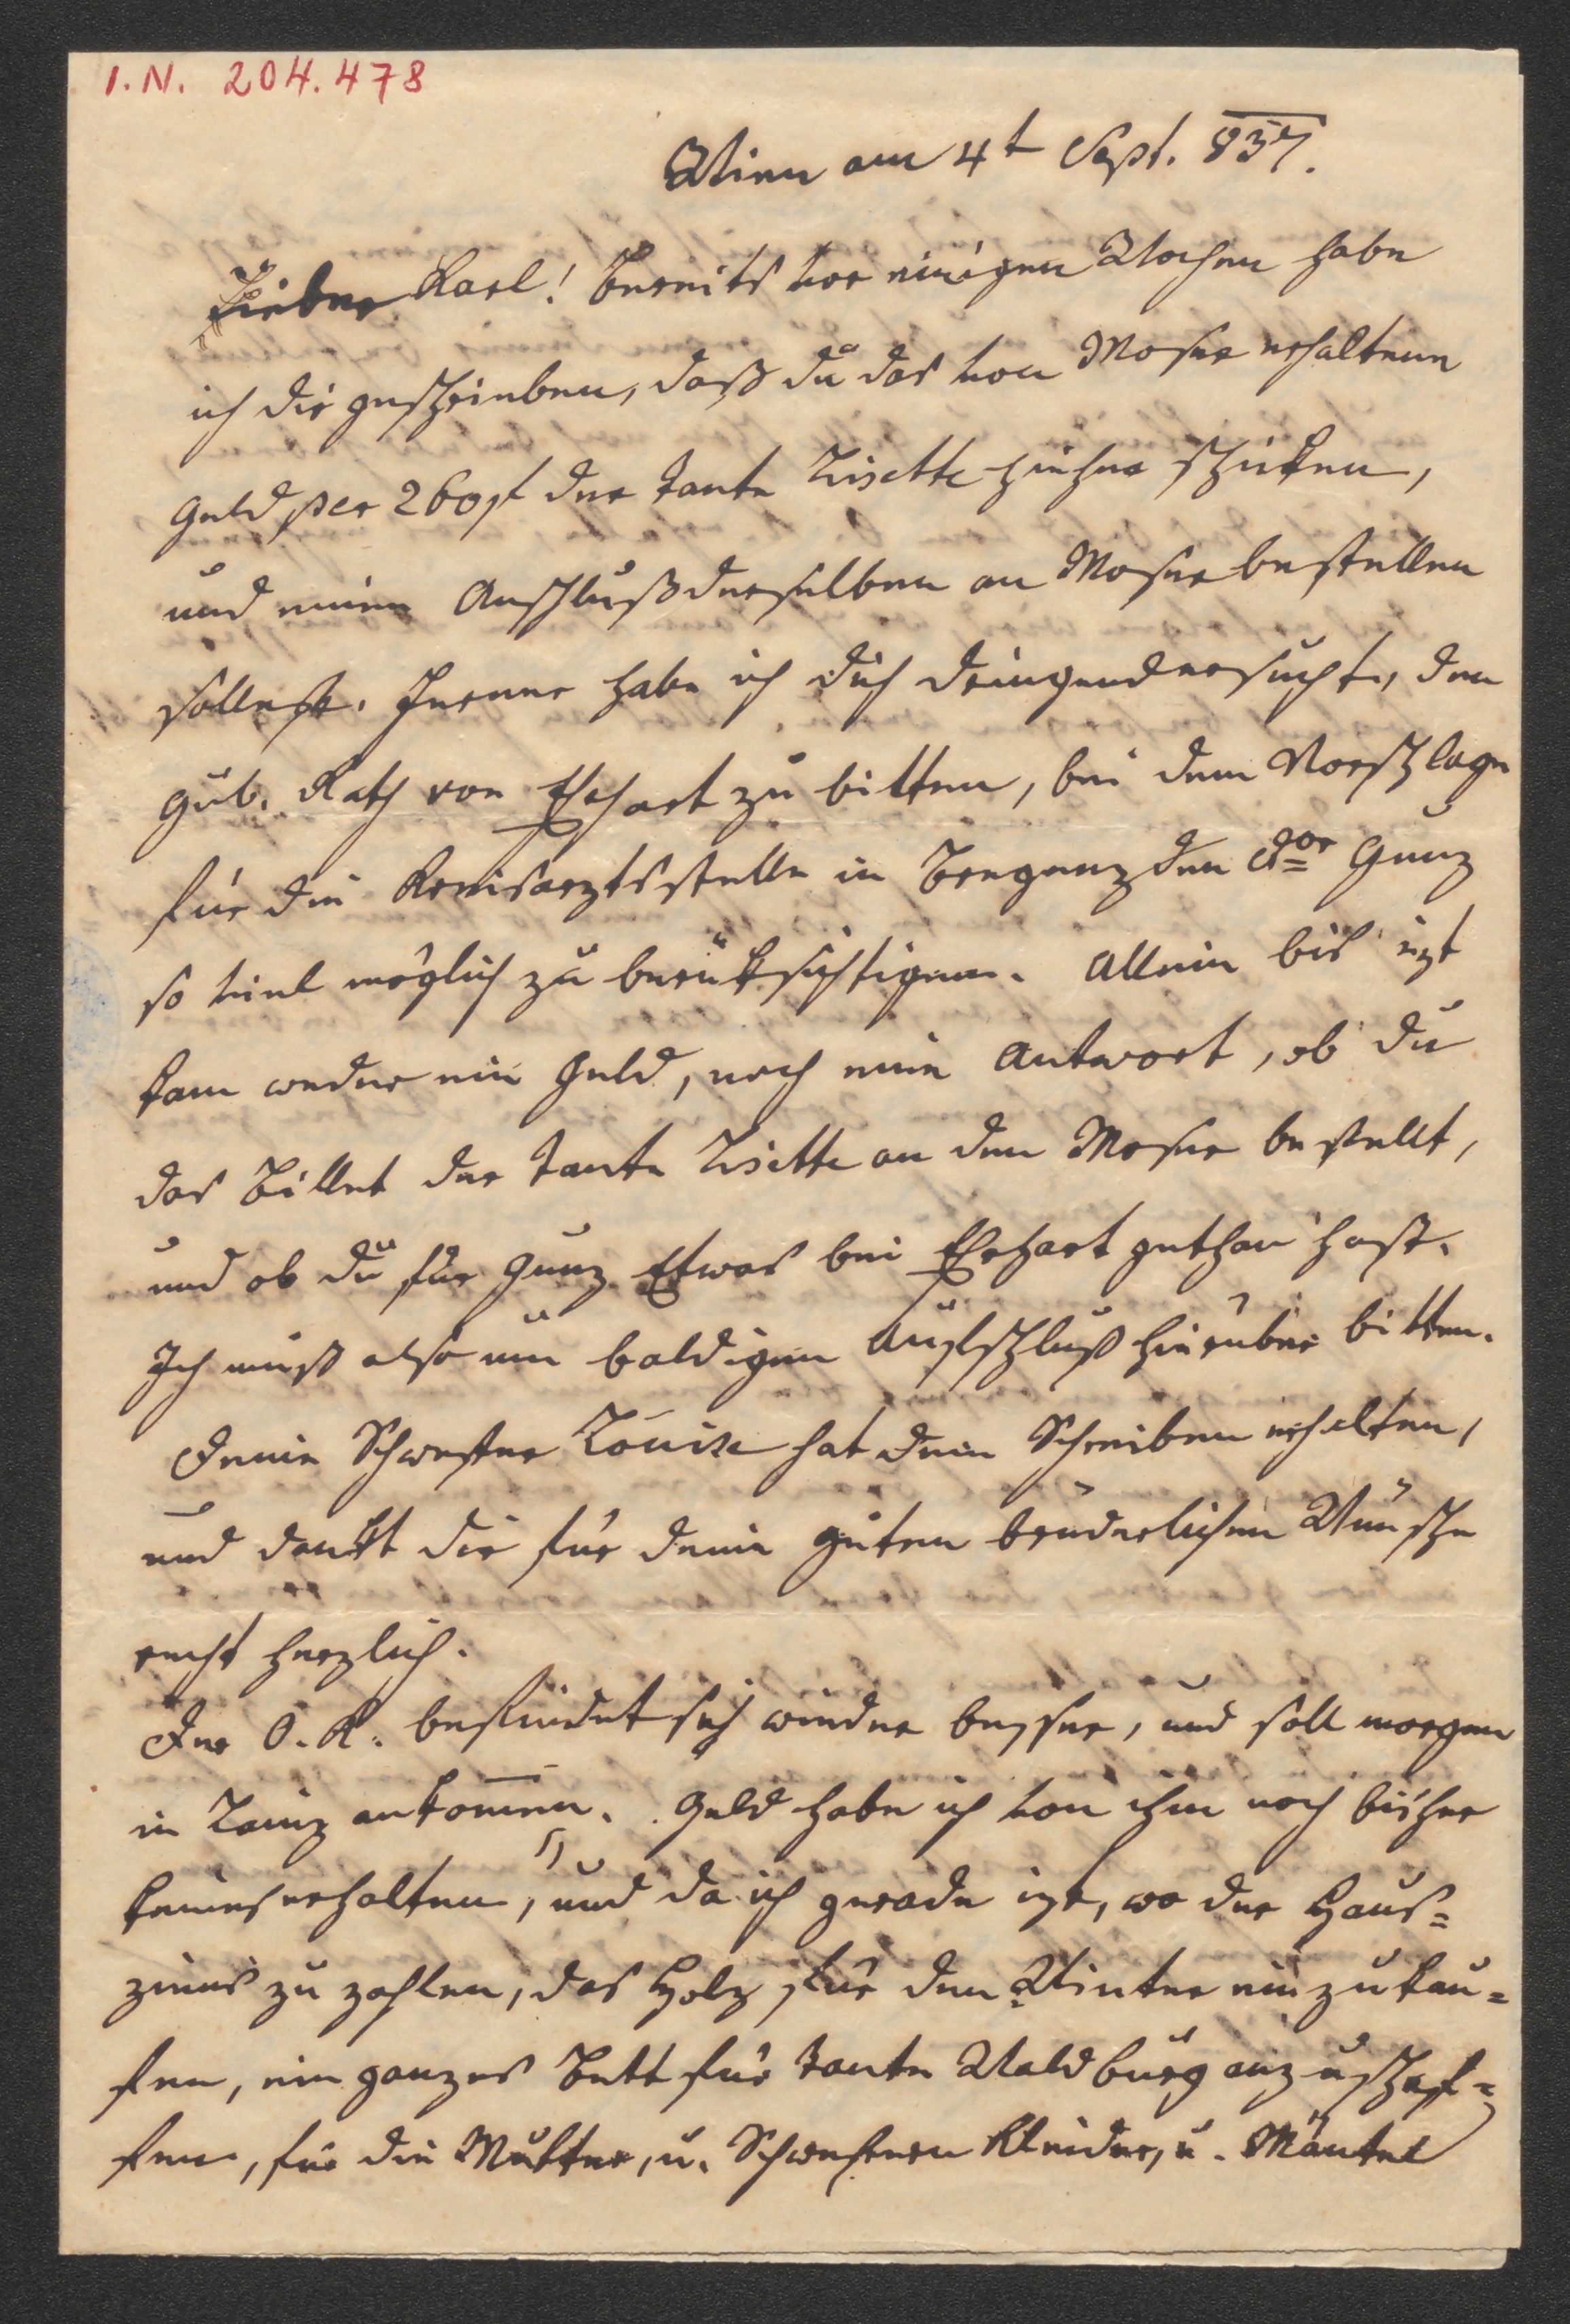 I.N. 204.478
Wien am 4t Sept. 837.
Lieber Karl! Bereits vor einigen Wochen habe
ich dir geschrieben, daß du das von Moser erhaltene
Geld per 260 f der Tante Lisette hieher schicken,
und einen Anschluß derselben an Moser bestellen
sollest. Ferner habe ich dich dringend ersucht, den
Gub. Rath von Ehrhart zu bitten, bei dem Vorschlage
für die Kreisarztsstelle in Bregenz den Dor Gunz
so viel möglich zu berücksichtigen. Allein bis izt
kam weder ein Geld, noch eine Antwort, ob du
das Billet der Tante Lisette an den Moser bestellt,
und ob du für Gunz Etwas bei Ehrhart gethan hast.
Ich muß also um baldigen Aufschluß hierüber bitten.
Deine Schwester Louise hat dein Schreiben erhalten,
und dankt dir für deine guten brüderlichen Wünsche
recht herzlich.
Der O. K. befindet sich wieder besser, und soll morgen
in Lainz ankommen. Geld habe ich von ihm noch bisher
keines erhalten, und da ich gerade izt, wo der Haus=
zins zu zahlen, das Holz für den Winter einzukau=
fen, ein ganzes Bett für Tante Waldburg anzuschaf=
fen, für die Mutter, u. Schwestern Kleider, u. Mäntel